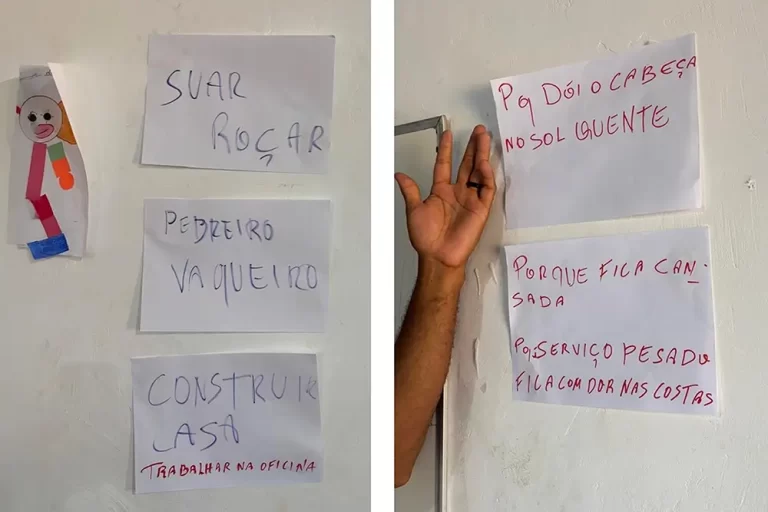 SUAR
ROÇAR
PEDREIRO
VAQUEIRO
CONSTRUIR
CASA
TRABALHAR NA OFICINA
Pq DÓI O CABEÇA
NO SOL QUENTE
PORQUE FICA CAN-
SADA
Pq SERVIÇO PESADO
FICA COM DOR NAS COSTAS